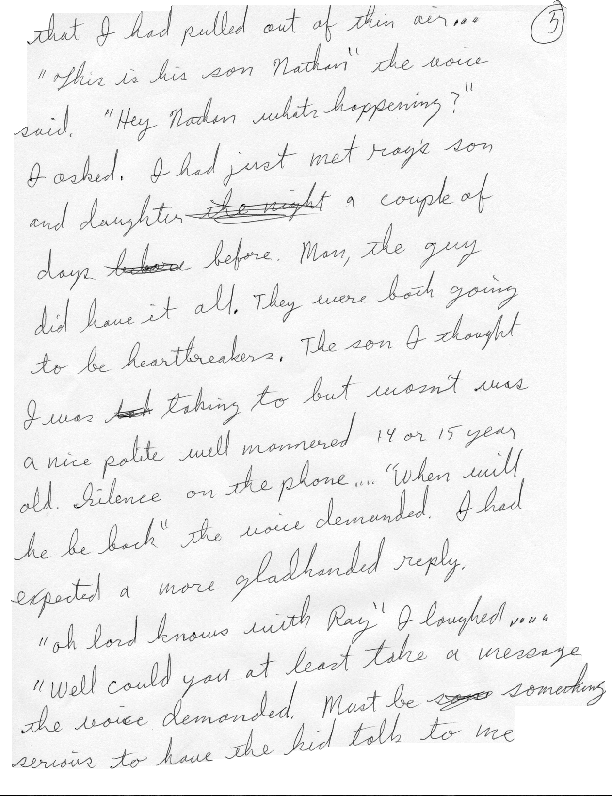 that I had pulled out of thin air... 3
"This is his son Nathan" the voice
said. "Hey Nathan whats happening?"
I asked. I had just met ray's son
and daughter the night a couple of
days before before. Man, the guy
did have it all. They were both going
to be heartbreakers. The son I thought
I was taking to but wasn't was
a nice polite well mannered 14 or 15 year
old. Silence on the phone.... "When will
he be back" the voice demanded. I had
expected a more gladhanded reply.
"oh lord knows with Ray" I laughed....
"Well could you at least take a message
the voice demanded. Must be something
serious to have the kid talk to me